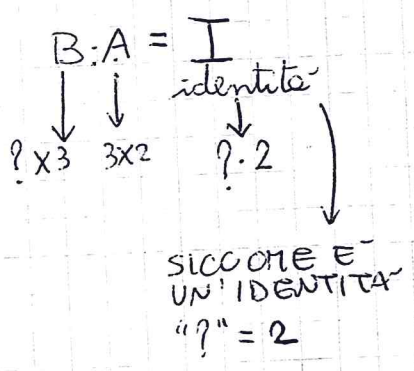 B.A = I
identità
? x3 3x2 ?.2
SICCOME E'
UN' IDENTITA'
"?" = 2